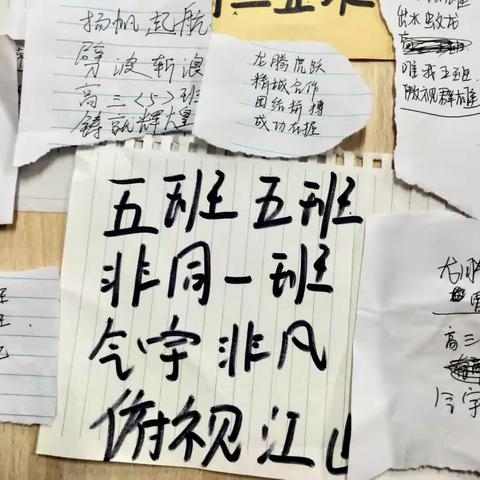 扬帆起航
劈波斩浪
高三<5>班
铸就辉煌
龙腾虎跃
精城合作
团结拼搏
成功在握
出水蛟龙
唯我五班
傲视群雄
五班五班
非同一班
气宇非凡
俯视江山
高三
气宇